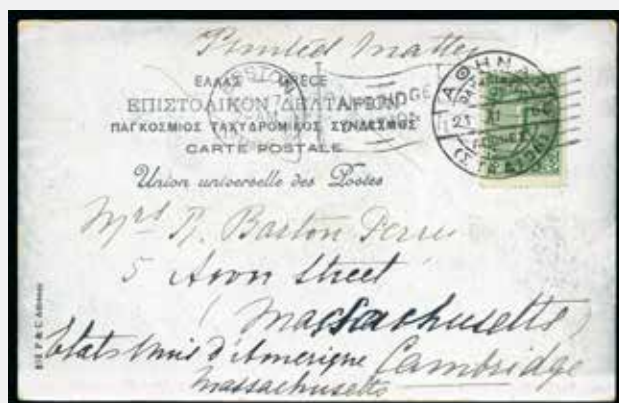 Printed Matter
ΕΛΛΑΣ GREECE
ΕΠΙΣΤΟΛΙΚΟΝ ΔΕΛΤΑΡΙΟΝ
ΠΑΓΚΟΣΜΙΟΣ ΤΑΧΥΔΡΟΜΙΚΟΣ ΣΥΝΔΕΣΜΟΣ
CARTE POSTALE
Union universelle des Postes
ΑΘΗΝ
BOSTON
CAMBRIDGE
Mrs R. Barton
5 Avon Street
(Massachusetts)
Etats Unis d'Amerique Cambridge
Massachusetts